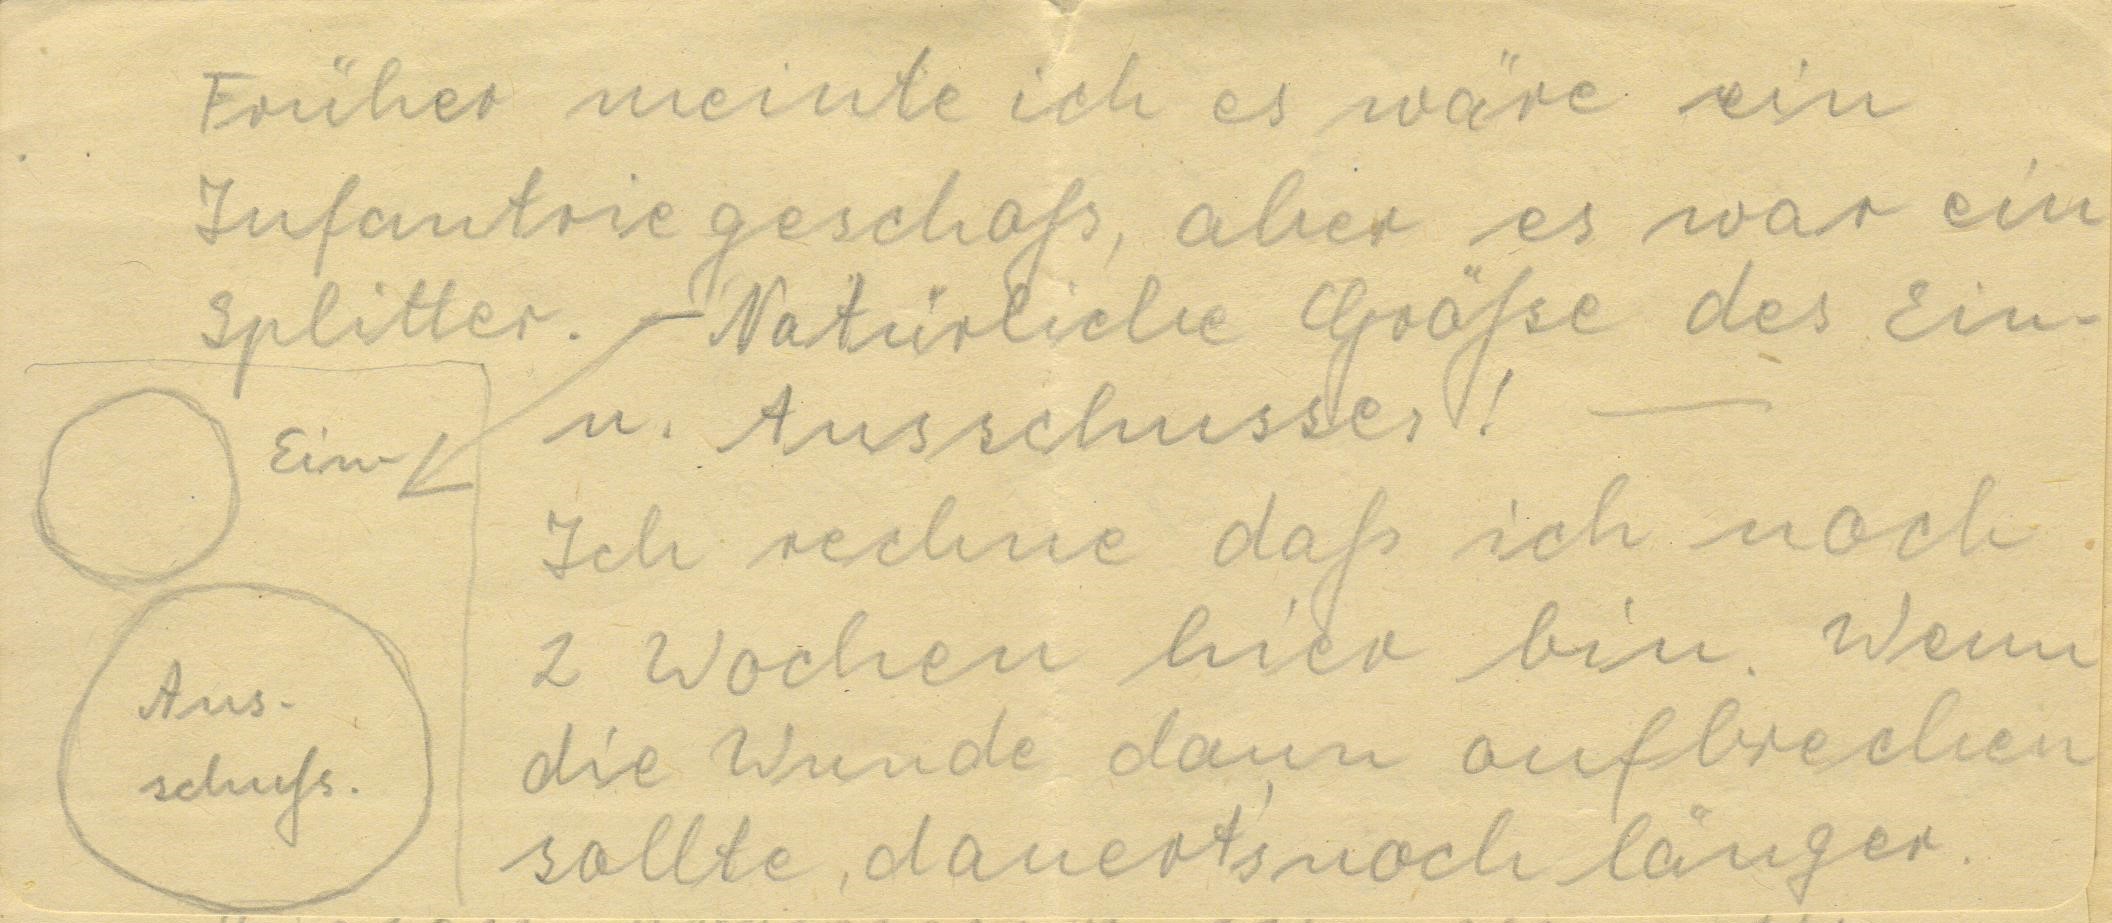 Früher meinte ich es wäre ein
Infantriegeschoß, aber es war ein
Splitter. – Natürliche Größe des Ein-
u. Ausschusses!
Ein-
Aus-
schuß.
Ich rechne daß ich noch
2 Wochen hier bin. Wenn
die Wunde dann aufbrechen
sollte, dauert's noch länger.